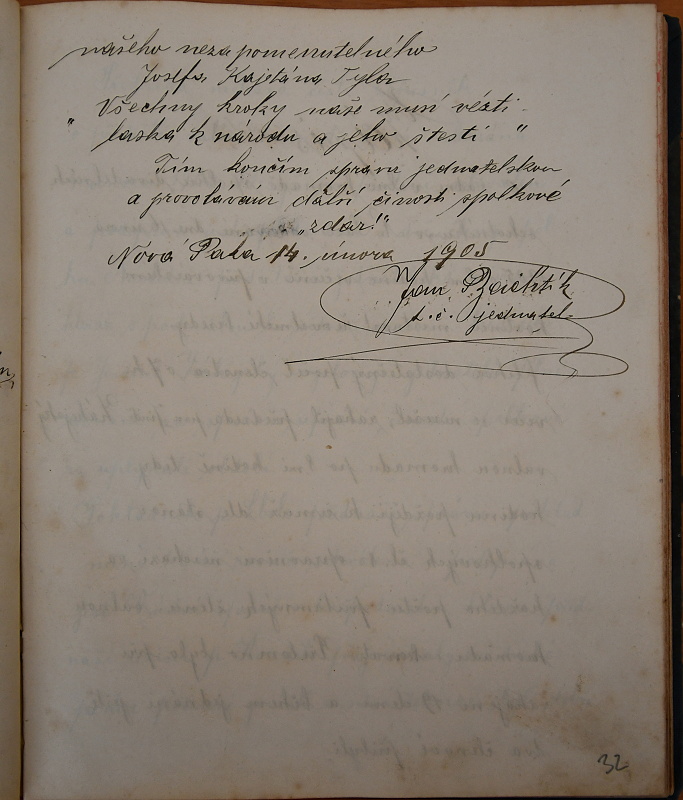 našeho nezapomenutelného
Josefa Kajetána Tyla
„Všechny kroky naše musí vézti
laska k národu a jeho štestí"
Tím končím zprávu jednatelskou
a provolávám další činosti spolkové
„zdar!"
Nová Paka 14. února 1905
Jan
t. č. jednatel
32